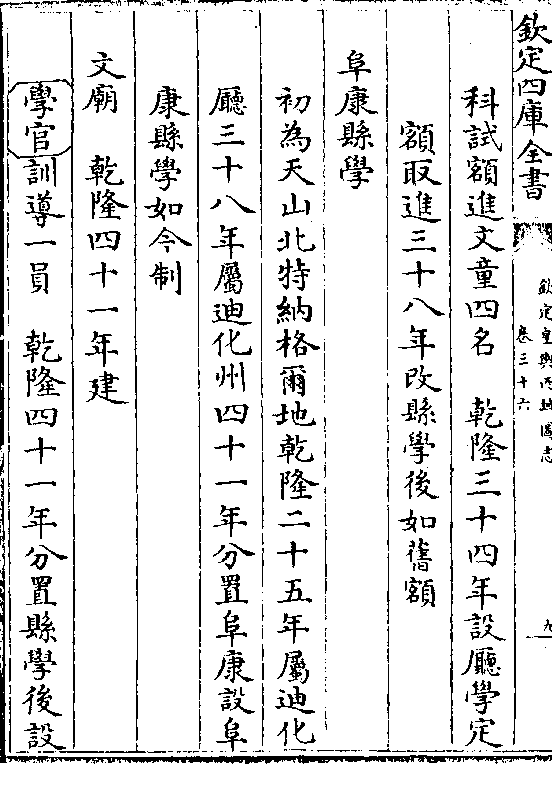 欽定四庫全書
欽定皇輿西域圖志
卷三十六
九
科試額進文童四名 乾隆三十四年設廳學定
額取進三十八年改縣學後如舊額
阜康縣學
初為天山北特納格爾地乾隆二十五年屬迪化
廳三十八年屬迪化州四十一年分置阜康設阜
康縣學如今制
文廟 乾隆四十一年建
學官訓導一員 乾隆四十一年分置縣學後設